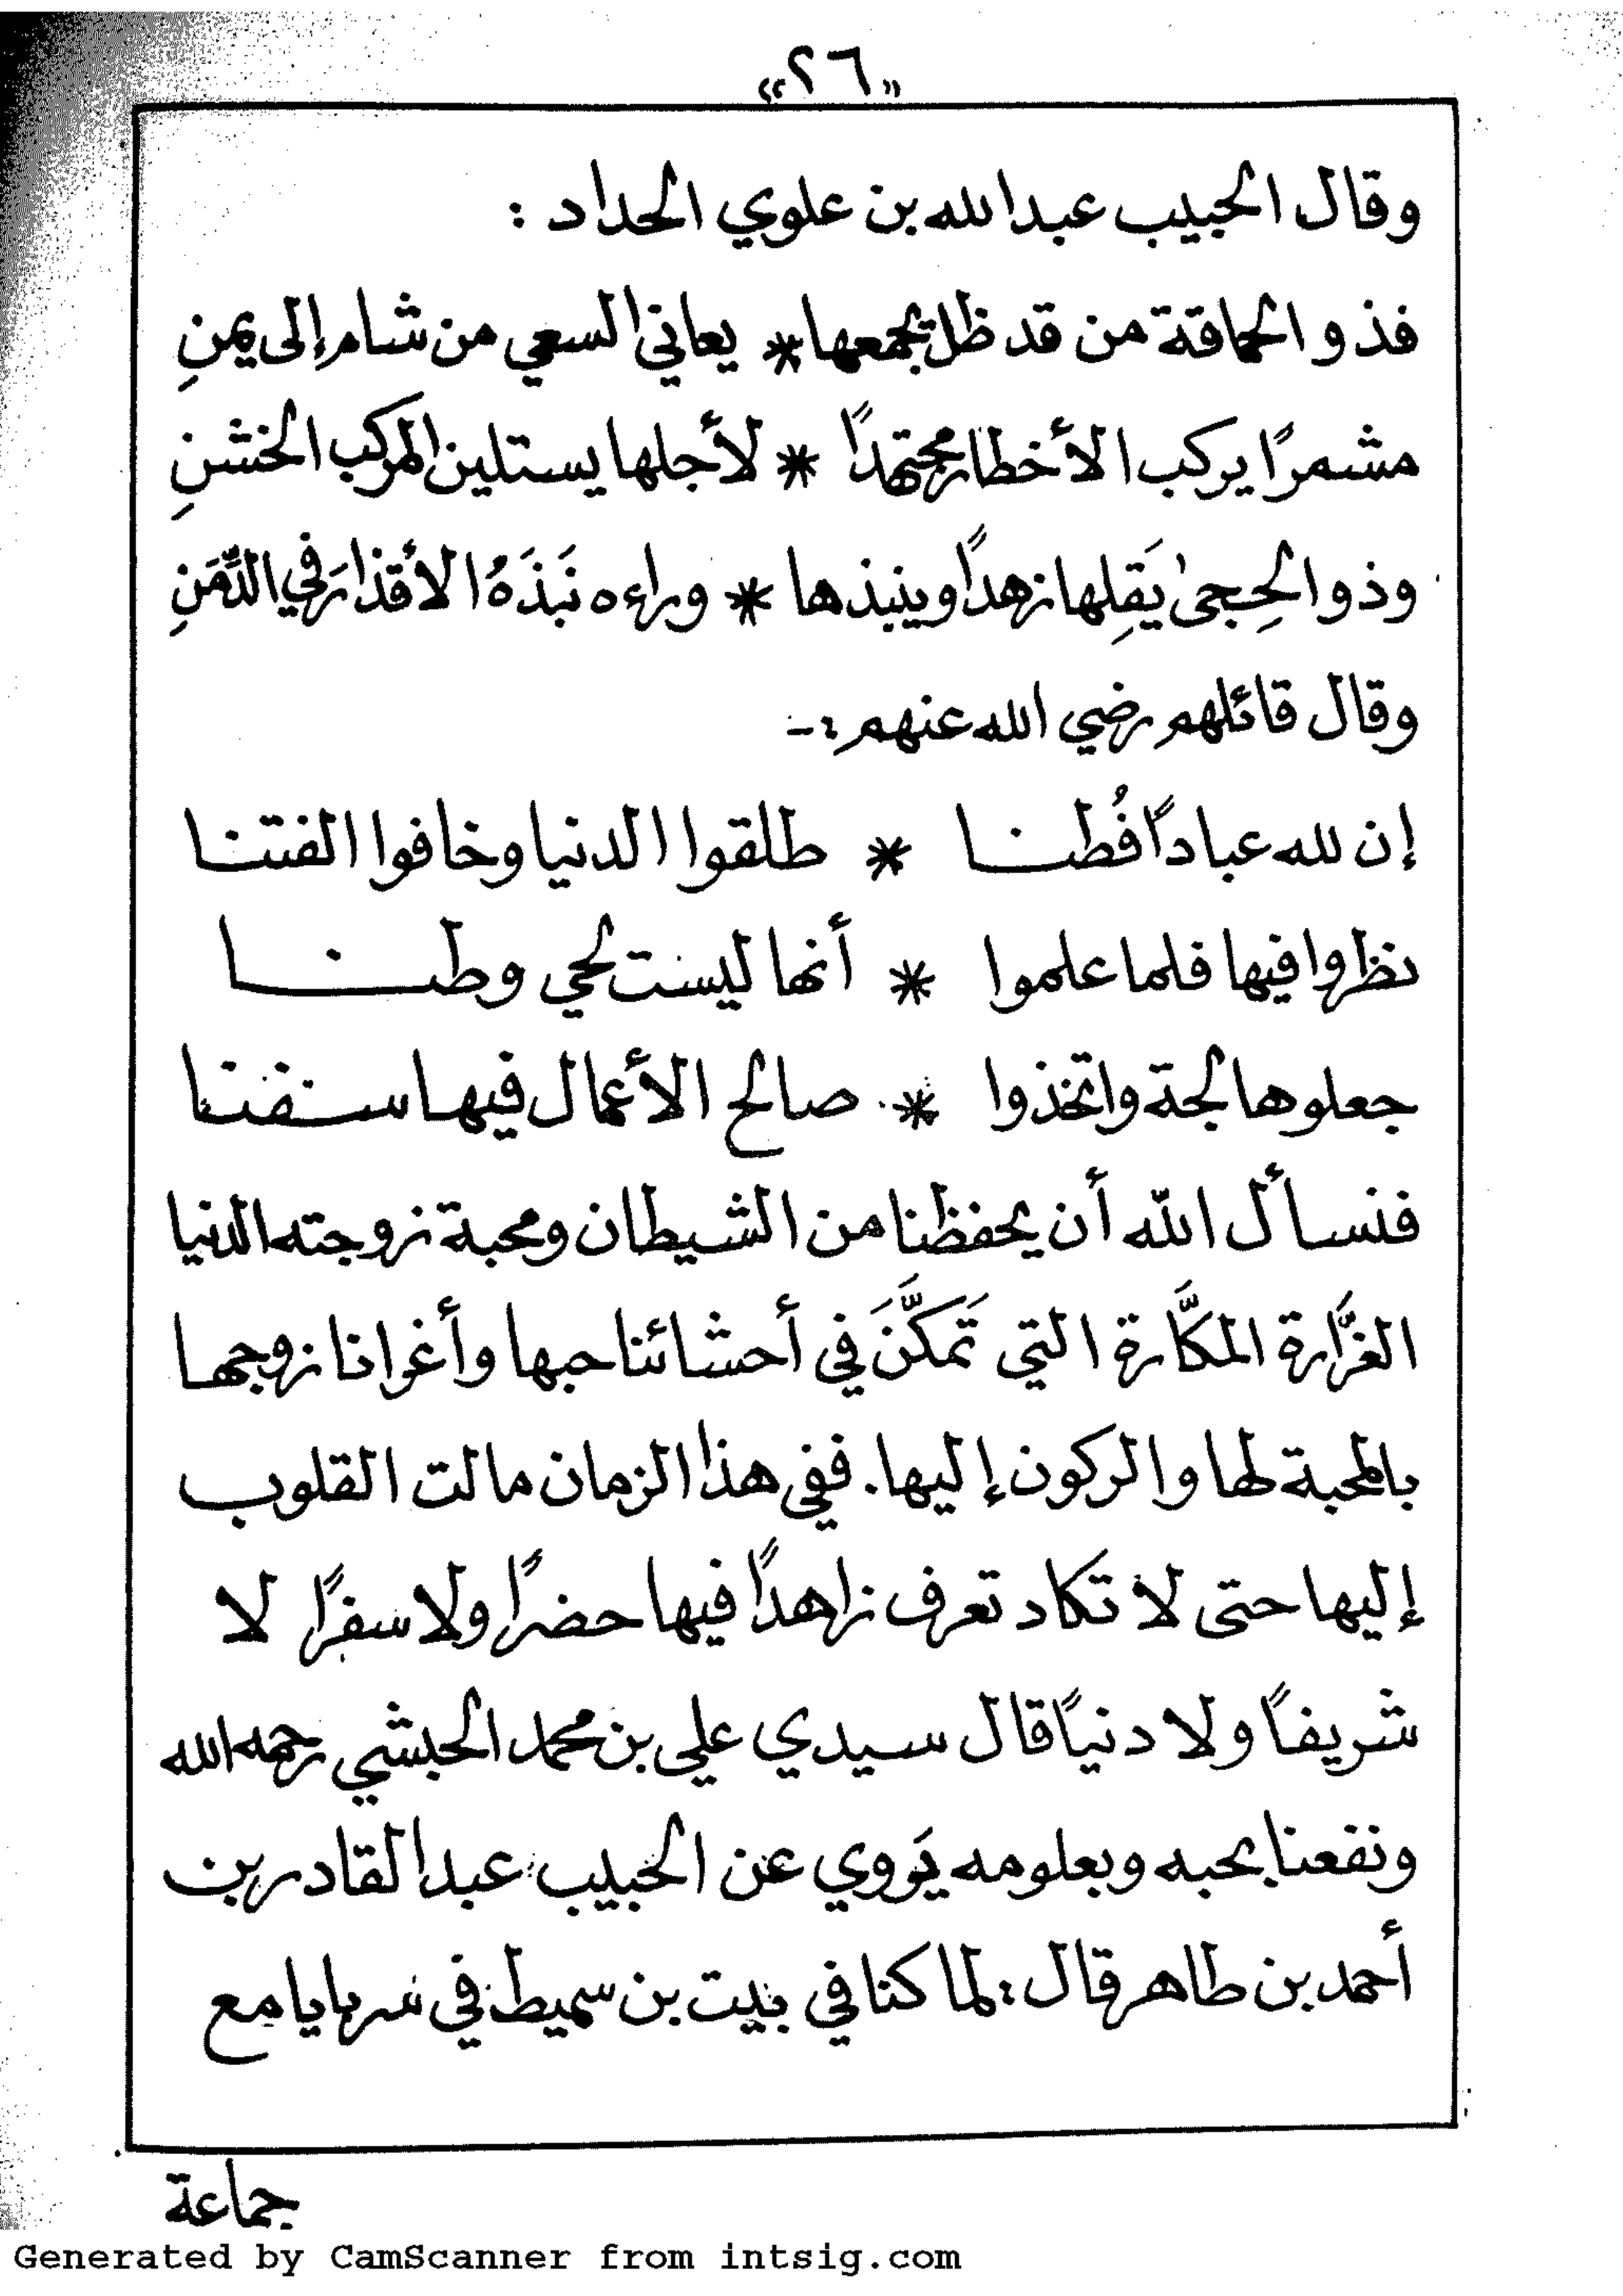 «٢٦»
وقال الحبيب عبدالله بن علوي الحداد :
فذو الحماقة من قد ظل يجمعها * يعاني السعي من شام إلى يمنِ
مشمرًا يركب الأخطار مجتهدًا * لأجلها يستلين المركب الخشنِ
وذو الحِجى يَقِلها زهدًا وينبذها * وراءه نَبَذَهُ الأقذارَ في الدِّمَنِ
وقال قائلهم رضي الله عنهم :-
إن لله عبادًا فُطنا * طلقوا الدنيا وخافوا الفتنا
نظروا فيها فلما علموا * أنها ليست لحي وطنا
جعلوها لجة واتخذوا * صالح الأعمال فيها سفنا
فنسأل الله أن يحفظنا من الشيطان ومحبة زوجته الدنيا
الغرَّارة المكَّارة التي تَمَكَّنَ في أحشائنا حبها وأغرانا زوجها
بالمحبة لها والركون إليها. ففي هذا الزمان مالت القلوب
إليها حتى لا تكاد تعرف زاهدًا فيها حضرًا ولا سفرًا لا
شريفًا ولا دنيًا قال سيدي علي بن محمد الحبشي رحمه الله
ونفعنا بحبه وبعلومه يَروي عن الحبيب عبدالقادر بن
أحمد بن طاهر قال : لما كنا في بيت بن سميط في سربايا مع
جماعة
Generated by CamScanner from intsig.com